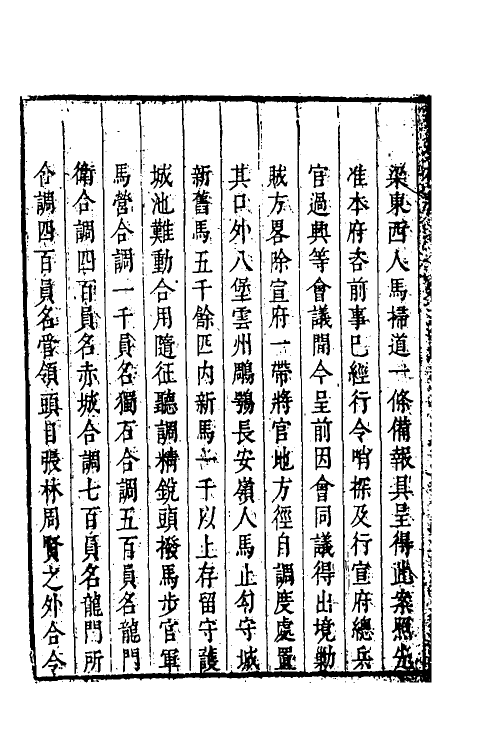 梁東西人馬掃道一條備報具呈得此案照先
准本府咨前事已經行令哨探及行宣府總兵
官過興等會議間今呈前因會同議得出境勦
賊方畧除宣府一帶將官地方徑自調度處置
其口外八堡雲州鵰鶚長安嶺人馬止勾守城
新舊馬五千餘匹内新馬一千以上存留守護
城池難動合用隨征聽調精銳頭撥馬步官軍
馬營合調一千員名獨石合調五百員名龍門
衛合調四百員名赤城合調七百員名龍門所
合調四百員名管領頭目張林周賢之外合令